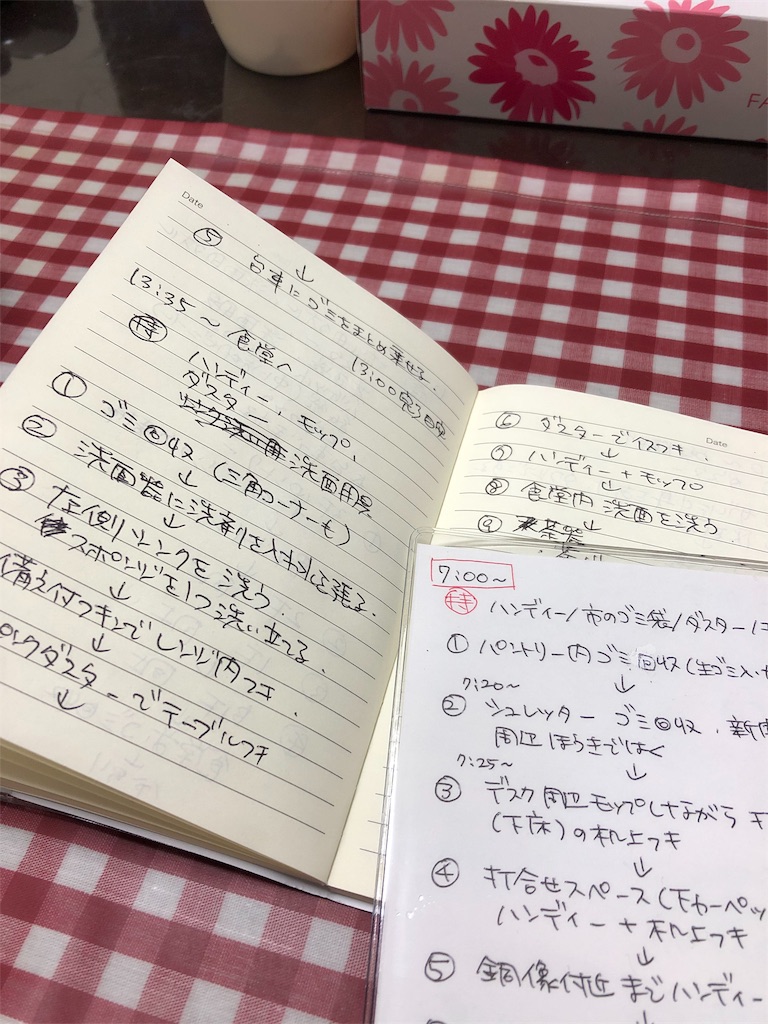 FA
Date
↓
⑤ 台車にゴミをまとめ乗せる.
13:00完了目安
13:35〜 食堂へ
㊕ ハンディー、モップ、
ダスター
洗面用具
① ゴミ回収 (三角コーナーも)
↓
② 洗面器に洗剤を入れ水を張る.
↓
③ 左側シンクを洗う.
スポンジを1つ洗い立てる.
↓
備え付フキンでレンジ内フキ.
↓
ンクダスターでテーブルフキ
↓
Date
⑥ ダスターでイスフキ.
↓
⑦ ハンディー+モップ
↓
⑧ 食堂内 洗面を洗う
↓
⑨ 茶器
7:00〜
ハンディー/市のゴミ袋/ダスター/
① パントリー内ゴミ回収(生ゴミ入
↓
7:20〜
② シュレッター ゴミ回収.
周辺ほうきではく
↓
7:25〜
③ デスク周辺モップしながら
(下床)の机上フキ
↓
④ 打合せスペース(下カーペッ
ハンディー+机上フキ
↓
⑤ 銅像付近までハンディー
↓